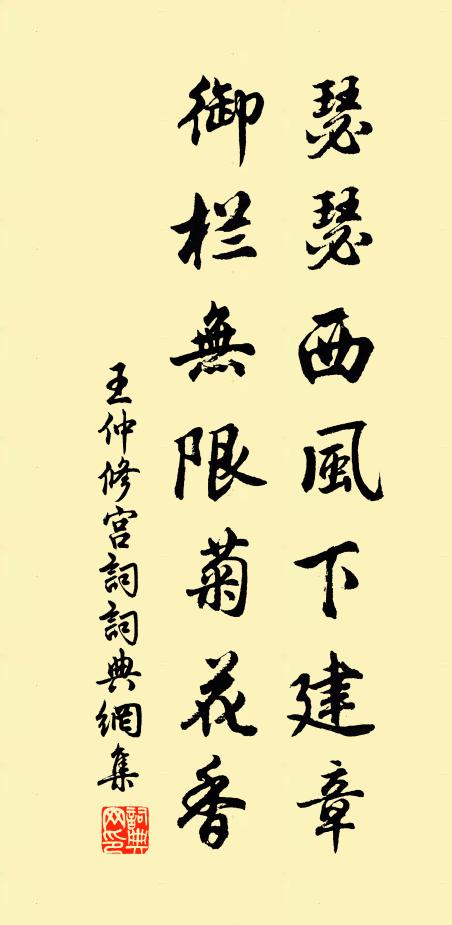 瑟瑟西風下建章
御栏無限菊花香
王仲修宫詞詞典網集
詞典
网印